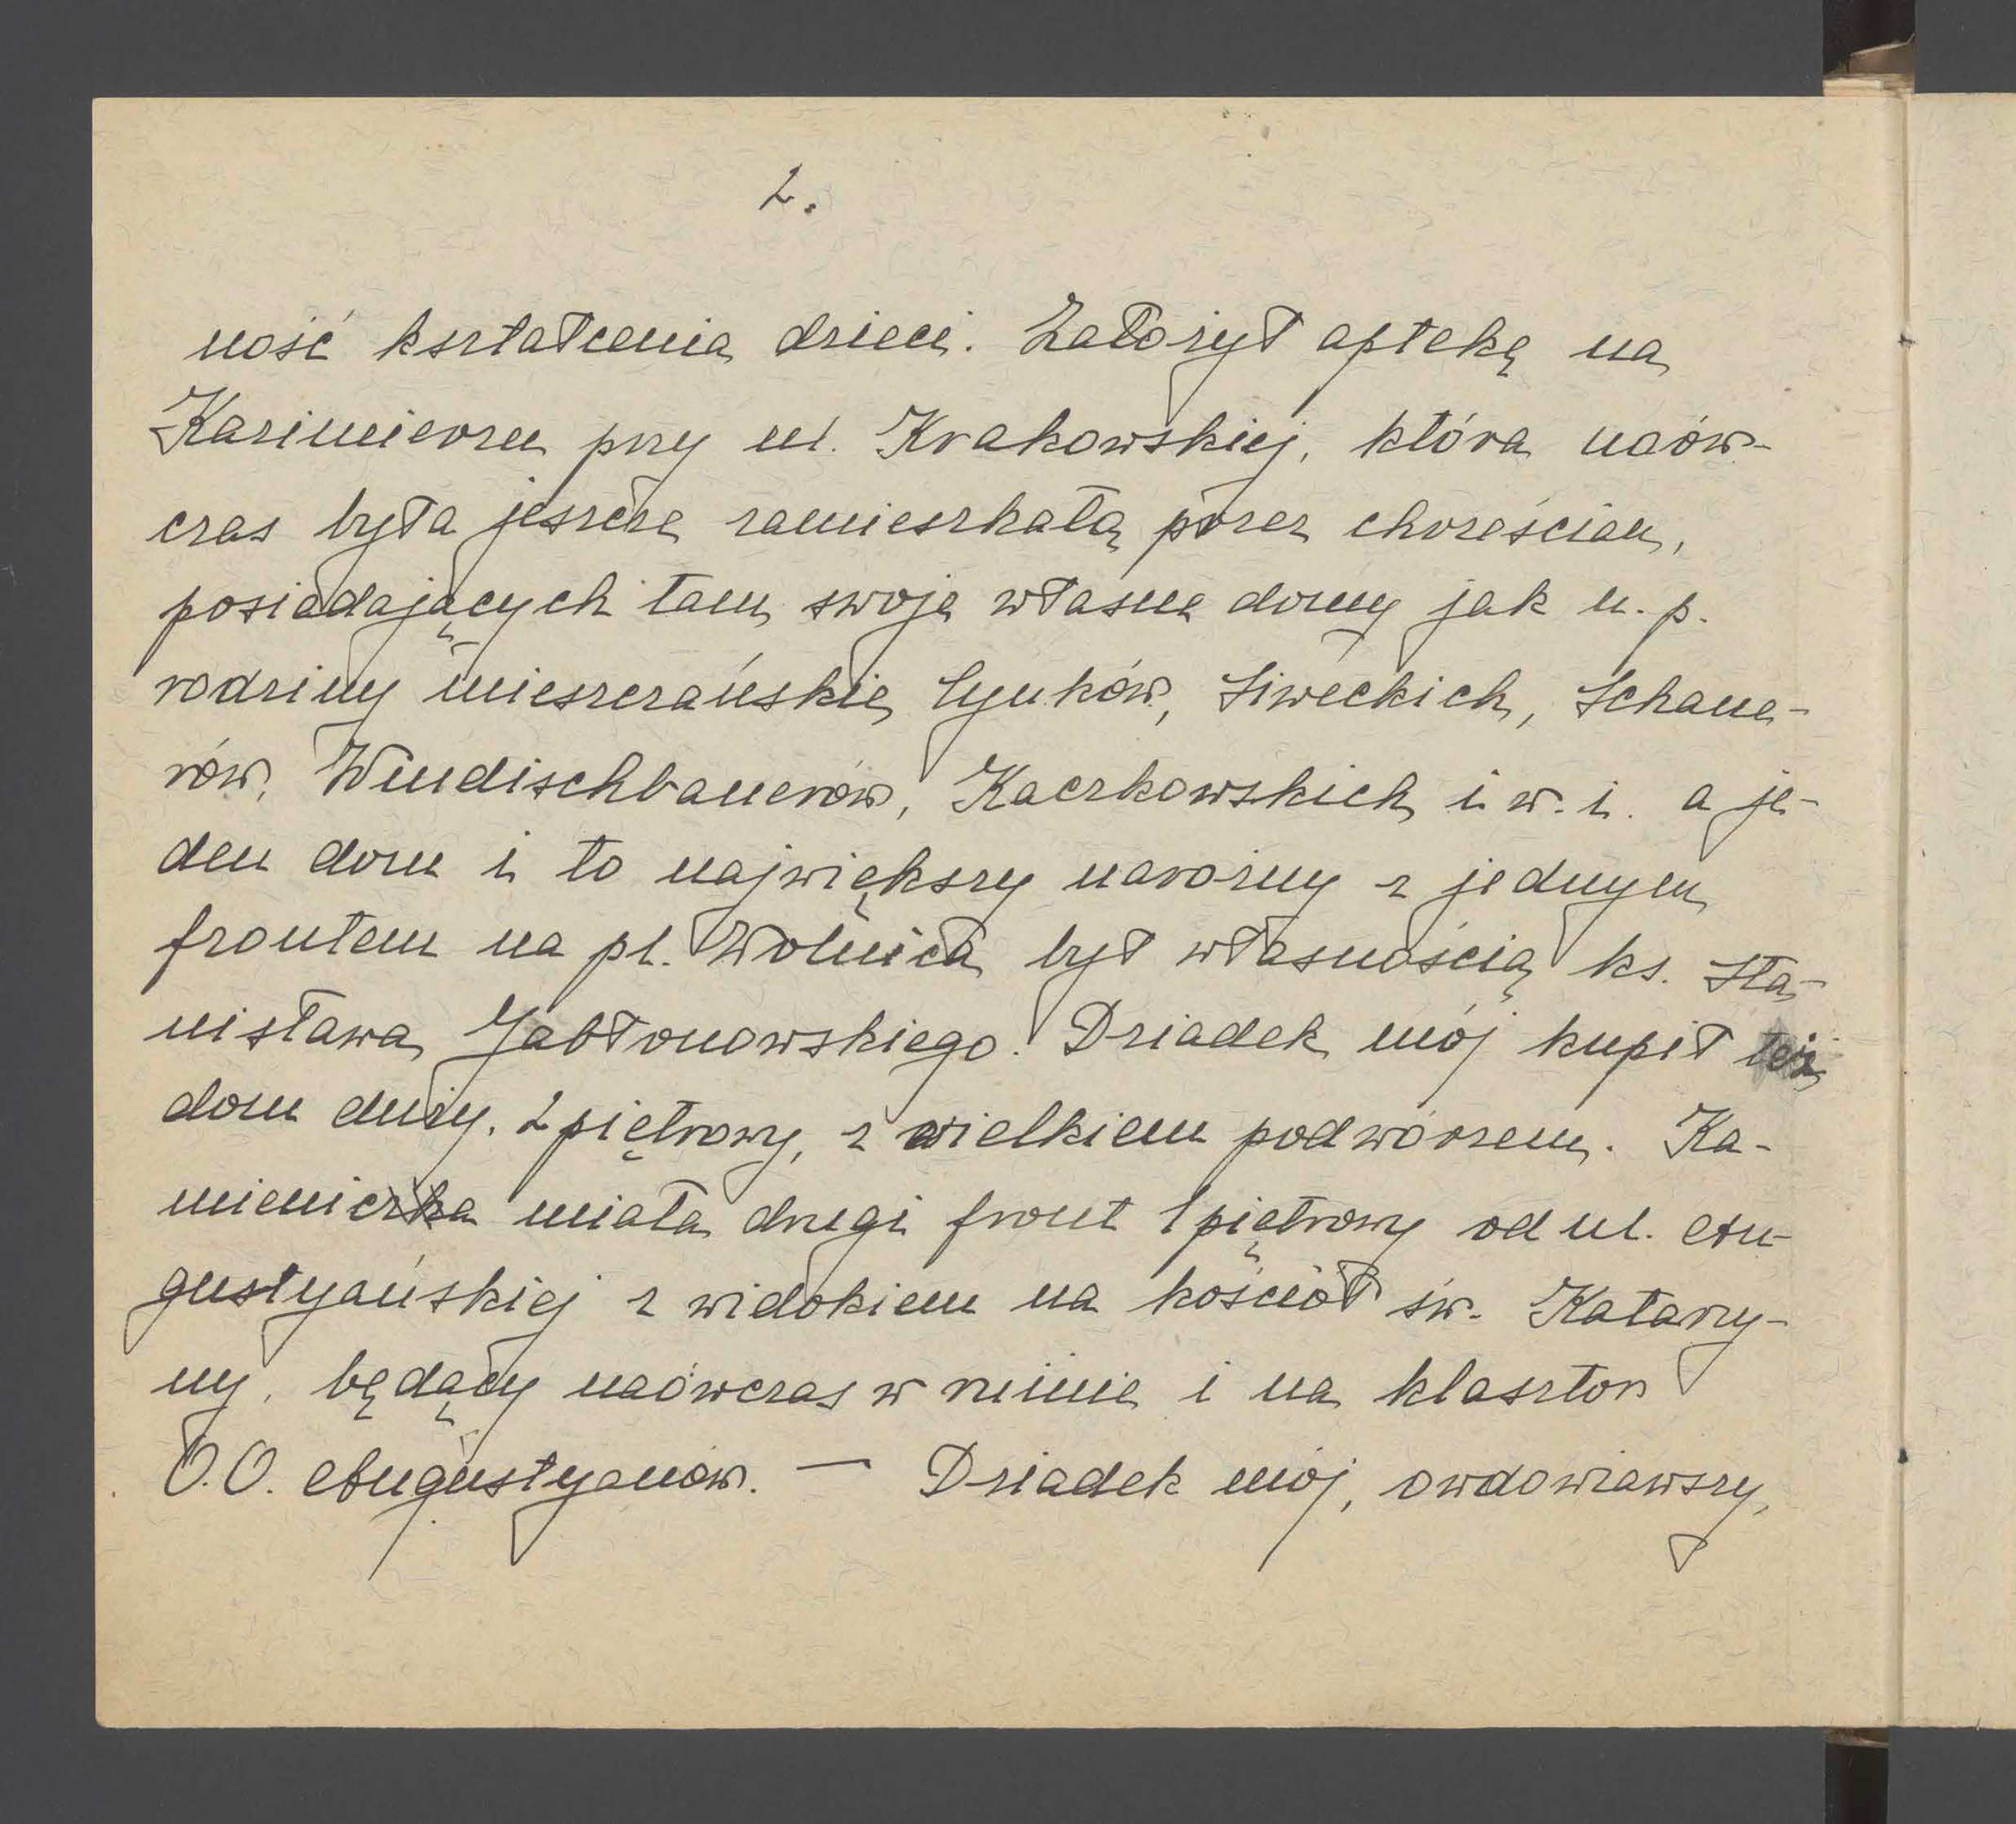 2.
ność kształcenia dzieci. Założył aptekę na
Kazimierzu przy ul. Krakowskiej, która naów-
czas była jeszcze zamieszkałą przez chrześcian,
posiadających tam swoje własne domy jak n. p.
rodziny mieszczańskie Cynków, Siweckich, Schaue-
rów, Windischbauerów, Kaczkowskich i w. i. a je-
den dom i to największy narożny z jednym
frontem na pl. Wolnica był własnością ks. Sta-
nisława Jabłonowskiego. Dziadek mój kupił też
dom duży, 2 piętrowy, z wielkiem podwórzem. Ka-
mienica miała drugi front 1 piętrowy od ul. Au-
gustyańskiej z widokiem na kościół św. Katarzy-
ny, będący naówczas w ruinie i na klasztor
O.O. Augustyanów. — Dziadek mój, owdowiawszy,